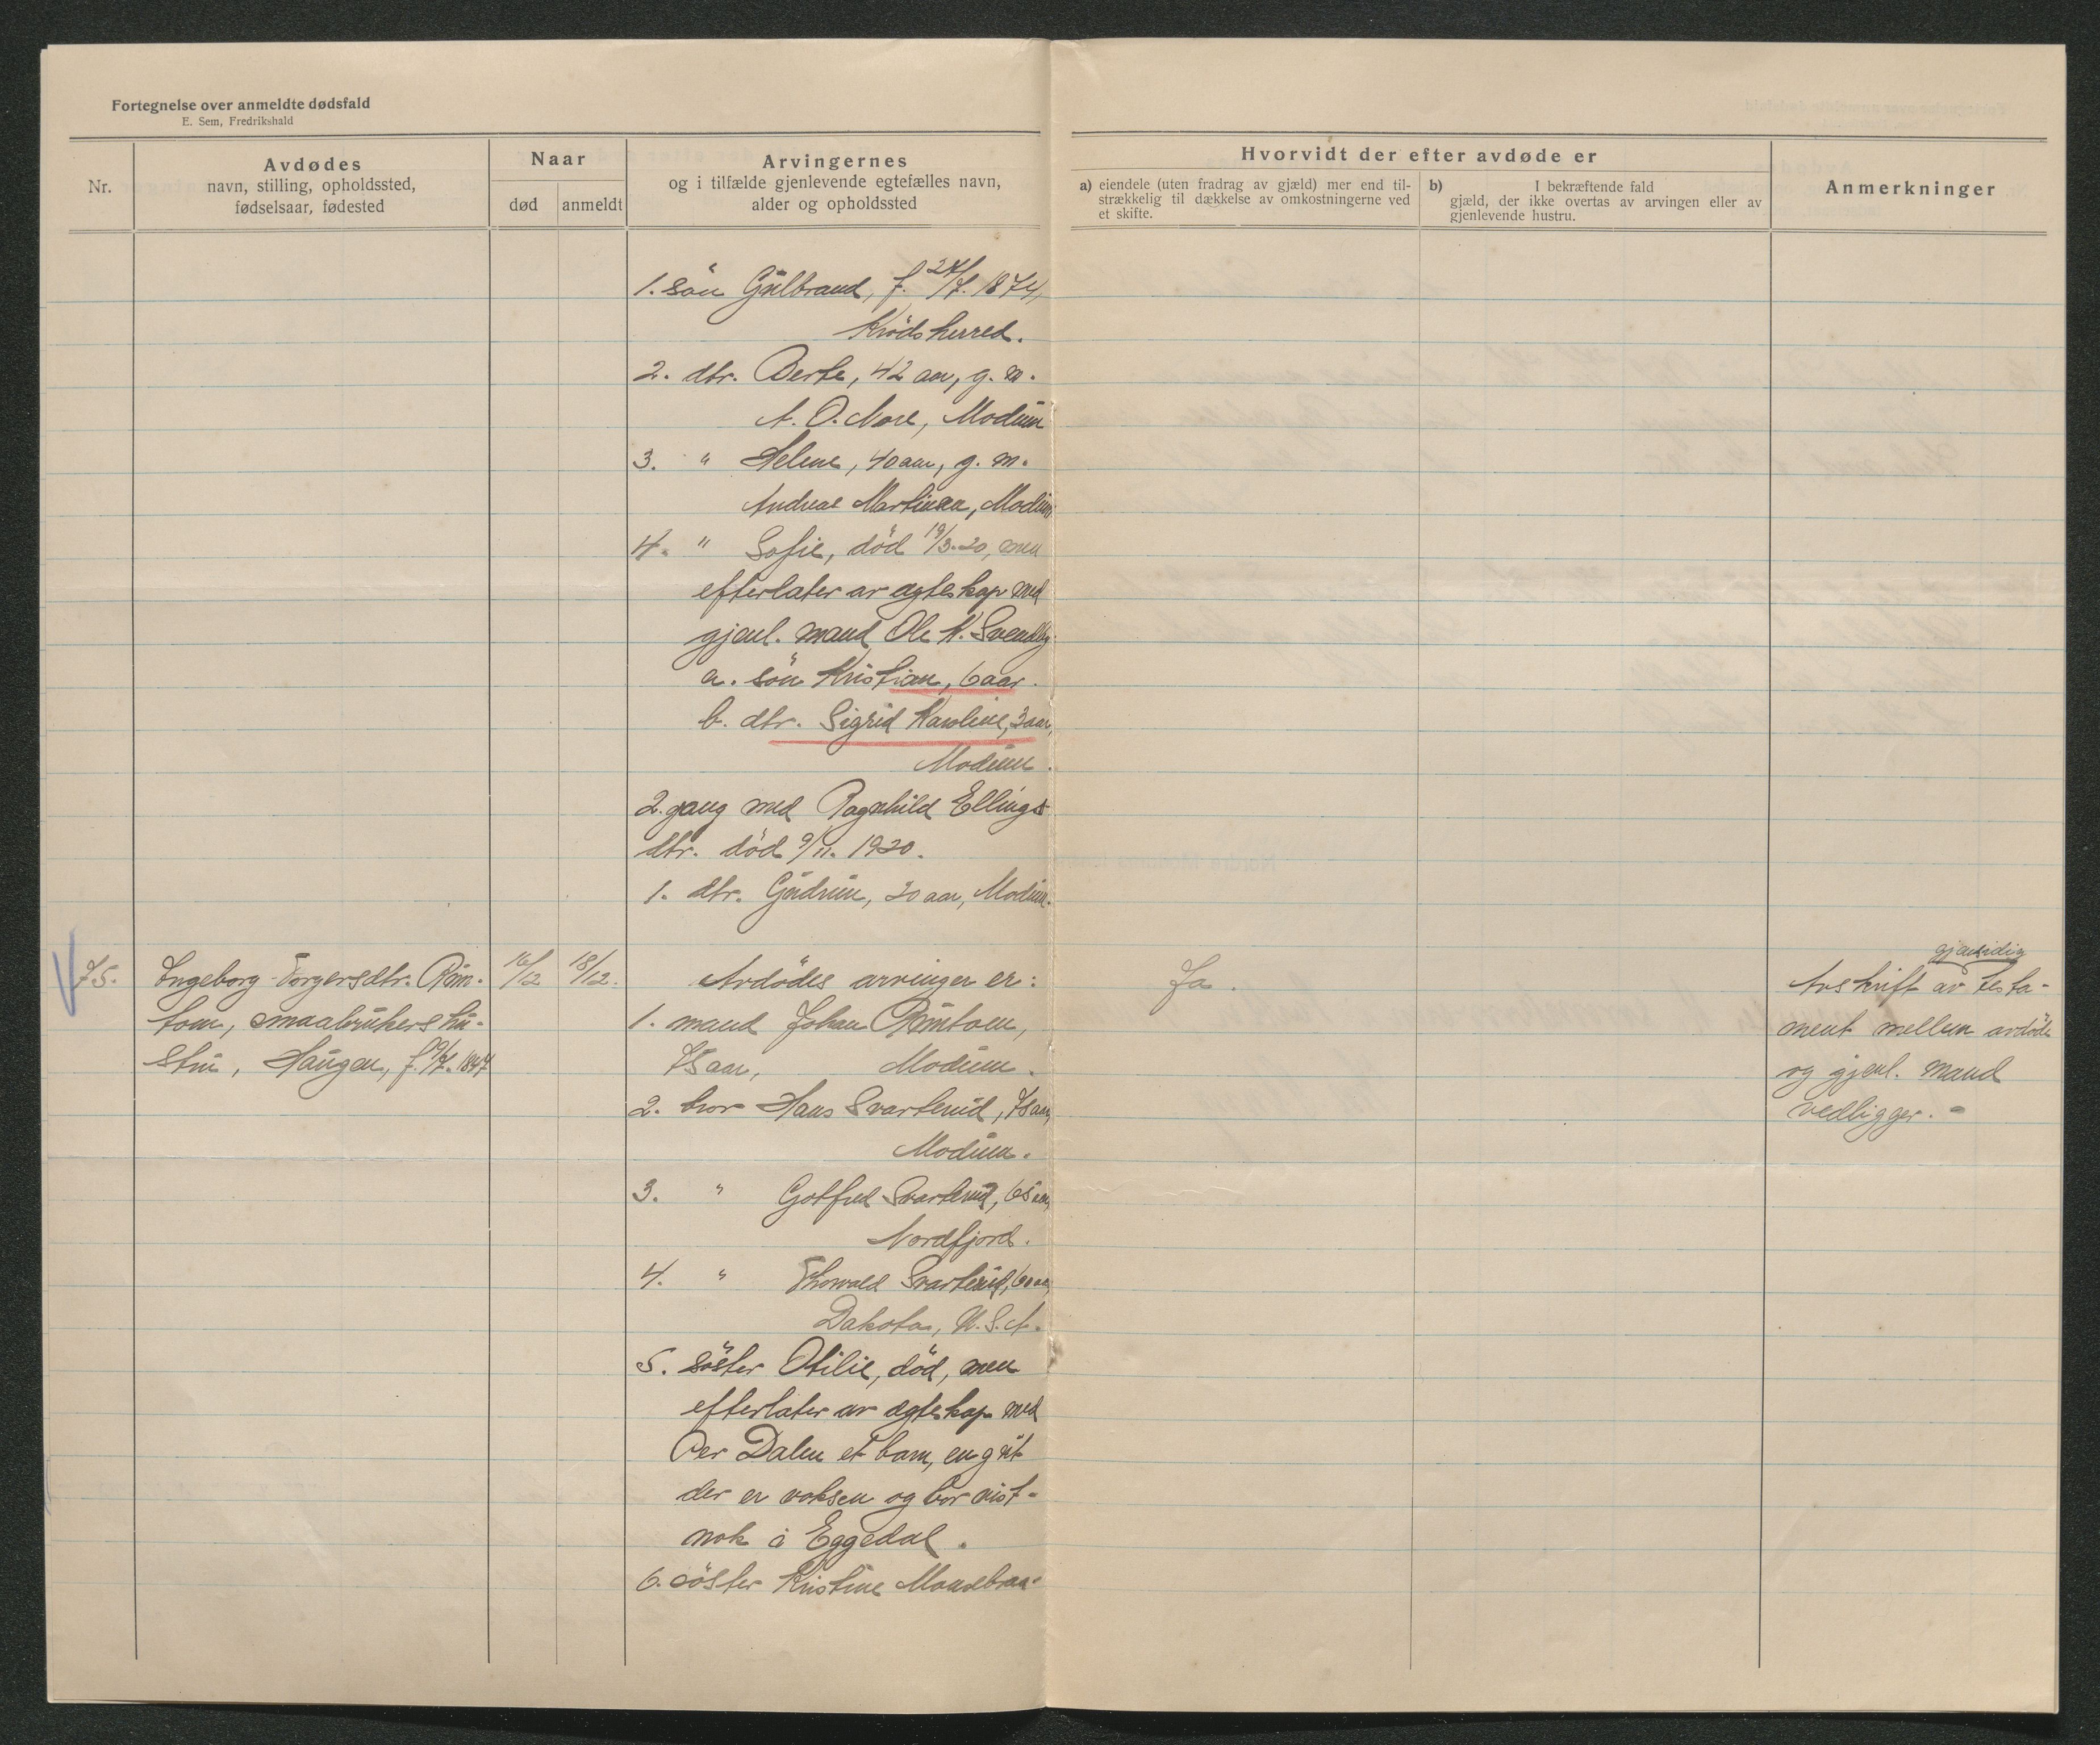 Fortegnelse over anmeldte dødsfald
E. Sem, Fredrikshald
Nr.
Avdødes
navn, stilling, opholdssted,
fødselsaar, fødested
Naar
død
anmeldt
Arvingernes
og i tilfælde gjenlevende egtefælles navn,
alder og opholdssted
Hvorvidt der efter avdøde er
a) eiendele (uten fradrag av gjæld) mer end til-
strækkelig til dækkelse av omkostningerne ved
et skifte.
b) I bekræftende fald
gjæld, der ikke overtas av arvingen eller av
gjenlevende hustru.
Anmerkninger
1. søn Gulbrand, f. 24/7. 1874,
Krødsherred.
2. dtr. Berte, 42 aar, g. m.
A. O. More, Modum
3. " Helene, 40 aar, g. m.
Andreas Martinsen, Modum
4. " Sofie, død 19/3.20, men
efterlater av egteskap med
gjenl. mand Ole K. Svendby
a. søn Kristian, 6 aar.
b. dtr. Sigrid Karoline, 3 aar,
Modum.
2. gang med Ragnhild Ellings
dtr. død 9/11. 1920.
1. dtr. Gudrun, 20 aar, Modum.
75.
Ingeborg Torgersdtr. Røm-
tom, smaabrukers hu-
stru, Haugen, f. 9/7. 1847
16/12
18/12.
Avdødes arvinger er:
1. mand Johan Rømtom,
75 aar, Modum.
2. bror Hans Svarterud, 75 aar,
Modum.
3. " Gotfred Svarterud, 65 aar,
Nordfjord.
4. " Thorvald Svarterud, 60 aar,
Dakota, U.S.A.
5. søster Otilie, død, men
efterlater av egteskap med
Per Dalen et barn, en gut
der er voksen og bor vist-
nok i Eggedal.
6. søster Kristine
Ja.
gjensidig
Avskrift av testa-
ment mellem avdøde
og gjenl. mand
vedligger. -